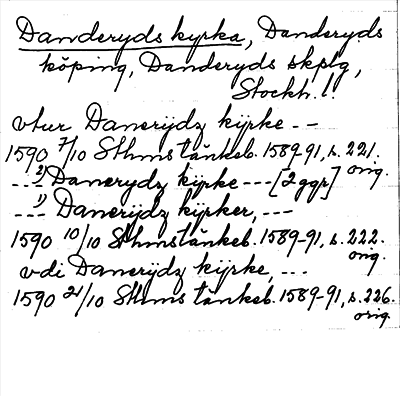 Danderyds kyrka, Danderyds
köping, Danderyds skplg,
Stockh. l.
vtur Danerijdz kijrke - -
1590 7/10 Sthms tänkeb. 1589-91, s. 221.
orig.
--- 2) Danerydz kijrke --- [2 ggr]
--- 1) Danerijdz kijrker, ---
1590 10/10 Sthms tänkeb. 1589-91, s. 222.
orig.
vdi Danerijdz kijrke, ---
1590 21/10 Sthms tänkeb. 1589-91, s. 226.
orig.